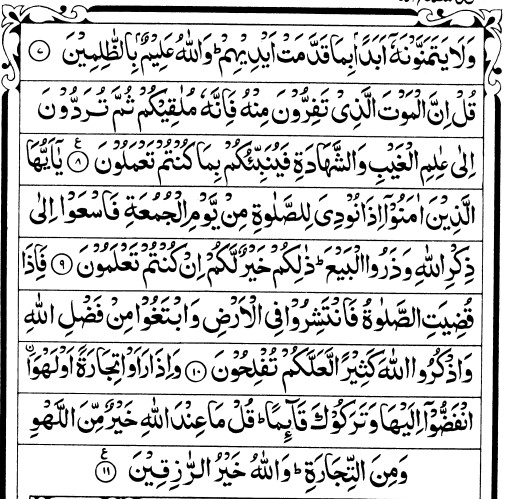 وَلَا يَتَمَنَّوْنَهٗۤ اَبَدًۢا بِمَا قَدَّمَتْ اَيْدِيْهِمْ ؕ وَاللّٰهُ عَلِيْمٌۢ بِالظّٰلِمِيْنَ ۝۷
قُلْ اِنَّ الْمَوْتَ الَّذِىْ تَفِرُّوْنَ مِنْهُ فَاِنَّهٗ مُلٰقِيْكُمْ ثُمَّ تُرَدُّوْنَ
اِلٰى عٰلِمِ الْغَيْبِ وَالشَّهَادَةِ فَيُنَبِّئُكُمْ بِمَا كُنْتُمْ تَعْمَلُوْنَ ۝۸ ع يٰۤاَيُّهَا
الَّذِيْنَ اٰمَنُوْۤا اِذَا نُوْدِىَ لِلصَّلٰوةِ مِنْ يَّوْمِ الْجُمُعَةِ فَاسْعَوْا اِلٰى
ذِكْرِ اللّٰهِ وَذَرُوا الْبَيْعَ ؕ ذٰلِكُمْ خَيْرٌ لَّكُمْ اِنْ كُنْتُمْ تَعْلَمُوْنَ ۝۹ فَاِذَا
قُضِيَتِ الصَّلٰوةُ فَانْتَشِرُوْا فِى الْاَرْضِ وَابْتَغُوْا مِنْ فَضْلِ اللّٰهِ
وَاذْكُرُوا اللّٰهَ كَثِيْرًا لَّعَلَّكُمْ تُفْلِحُوْنَ ۝۱۰ وَاِذَا رَاَوْا تِجَارَةً اَوْ لَهْوَا۟
انْفَضُّوْۤا اِلَيْهَا وَتَرَكُوْكَ قَآئِمًا ؕ قُلْ مَا عِنْدَ اللّٰهِ خَيْرٌ مِّنَ اللَّهْوِ
وَمِنَ التِّجَارَةِ ؕ وَاللّٰهُ خَيْرُ الرّٰزِقِيْنَ ۝۱۱ ع